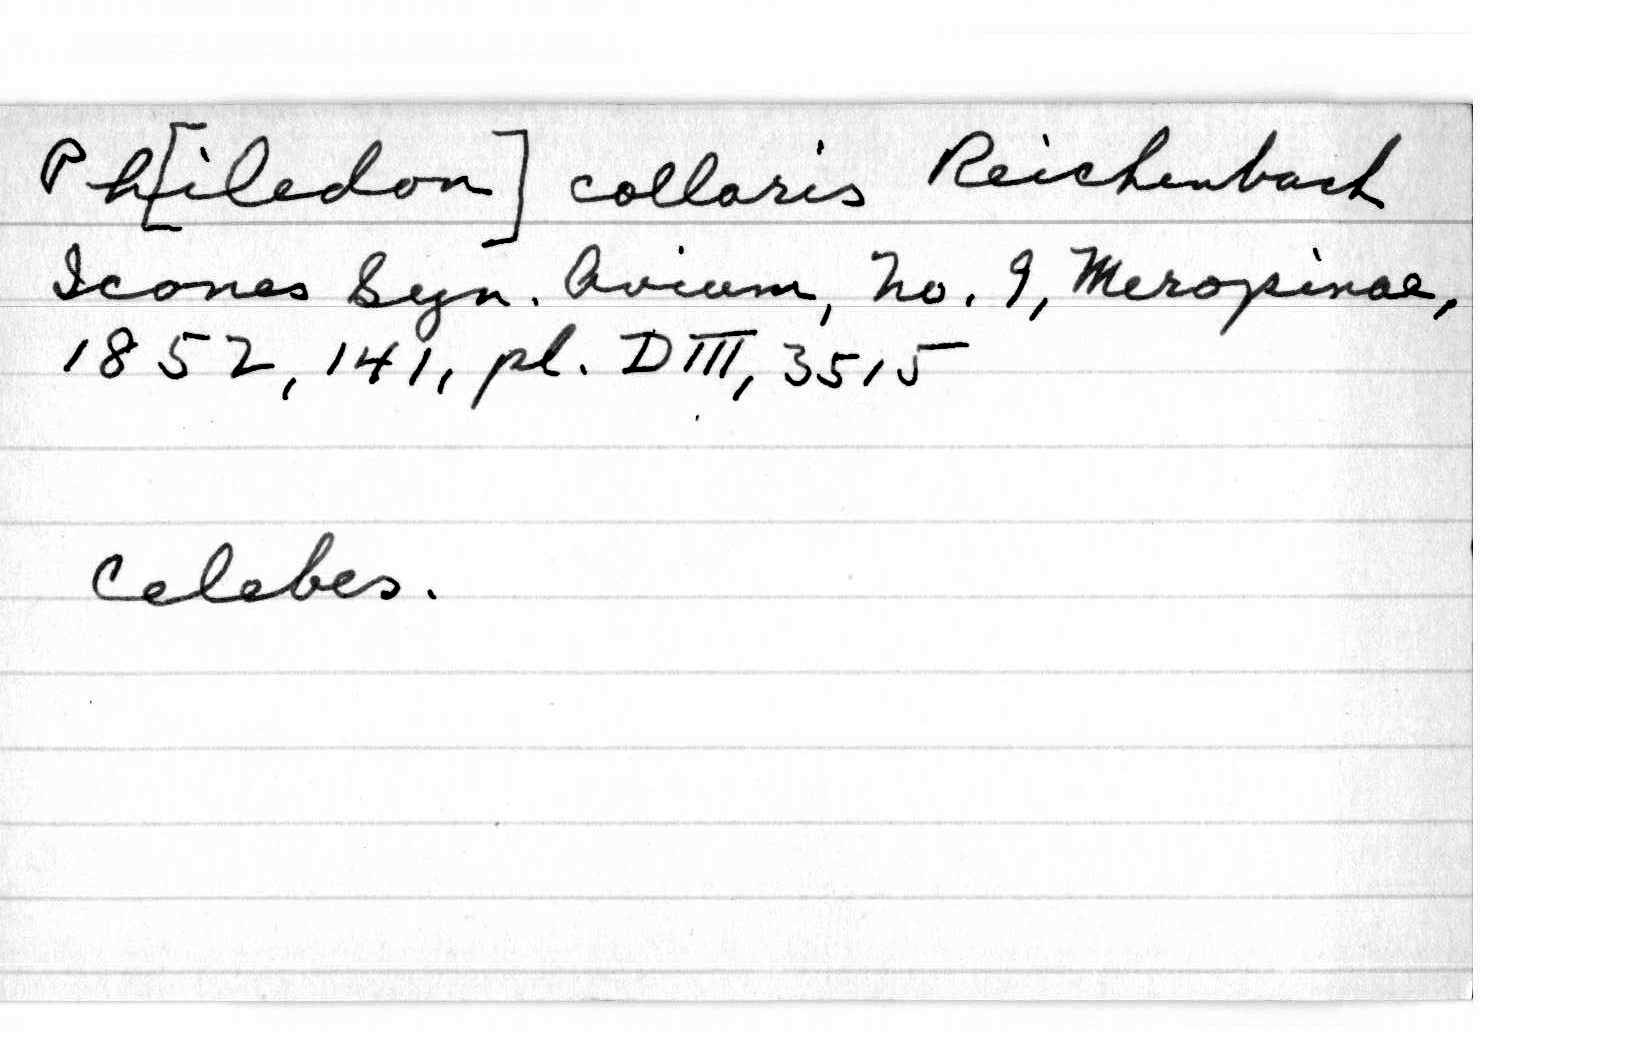 Ph[iledon] collaris Reichenbach
Icones Syn. Avium, No. 9, Meropinae,
1852, 141, pl. DIII, 3515
Celebes.